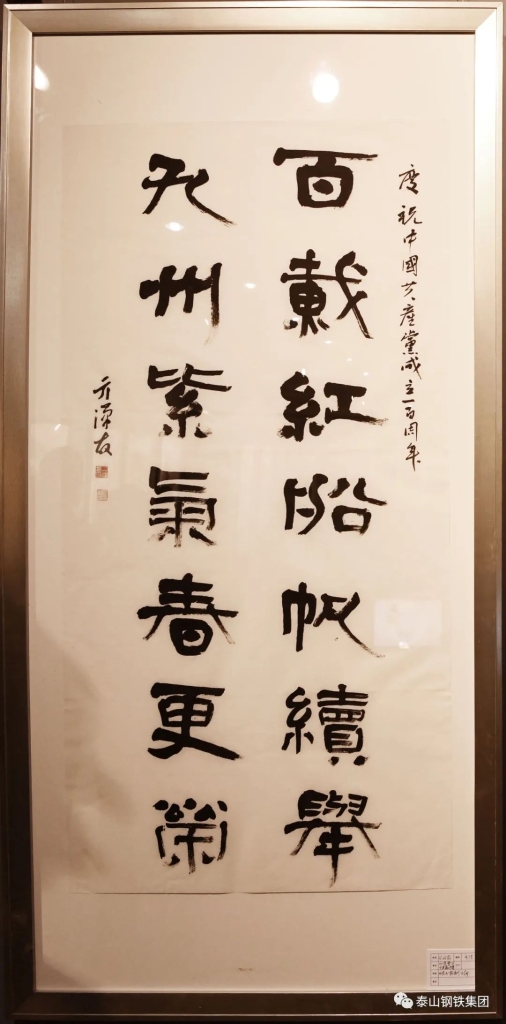 慶祝中國共產黨成立一百周年
百載紅船帆續舉
九州紫氣春更榮
泰山钢铁集团